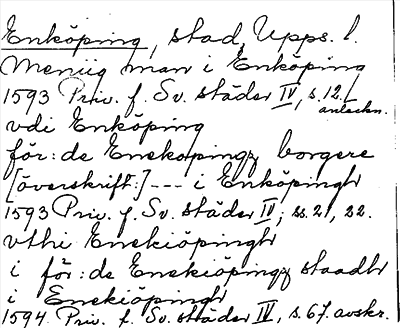 Enköping, stad, Upps. l.
Meniig man i Enköping
1593 Priv. f. Sv. städer IV, s. 12,
anteckn.
vdi Enköping
för:de Enekopingz borgere
[överskrift:] --- i Enköpingh
1593 Priv. f. Sv. städer IV, ss. 21, 22.
vthi Enekiöpingh
i för:de Enekiöpingz staadh
i Enekiöpingh
1594 Priv. f. Sv. städer IV, s. 67. avskr.